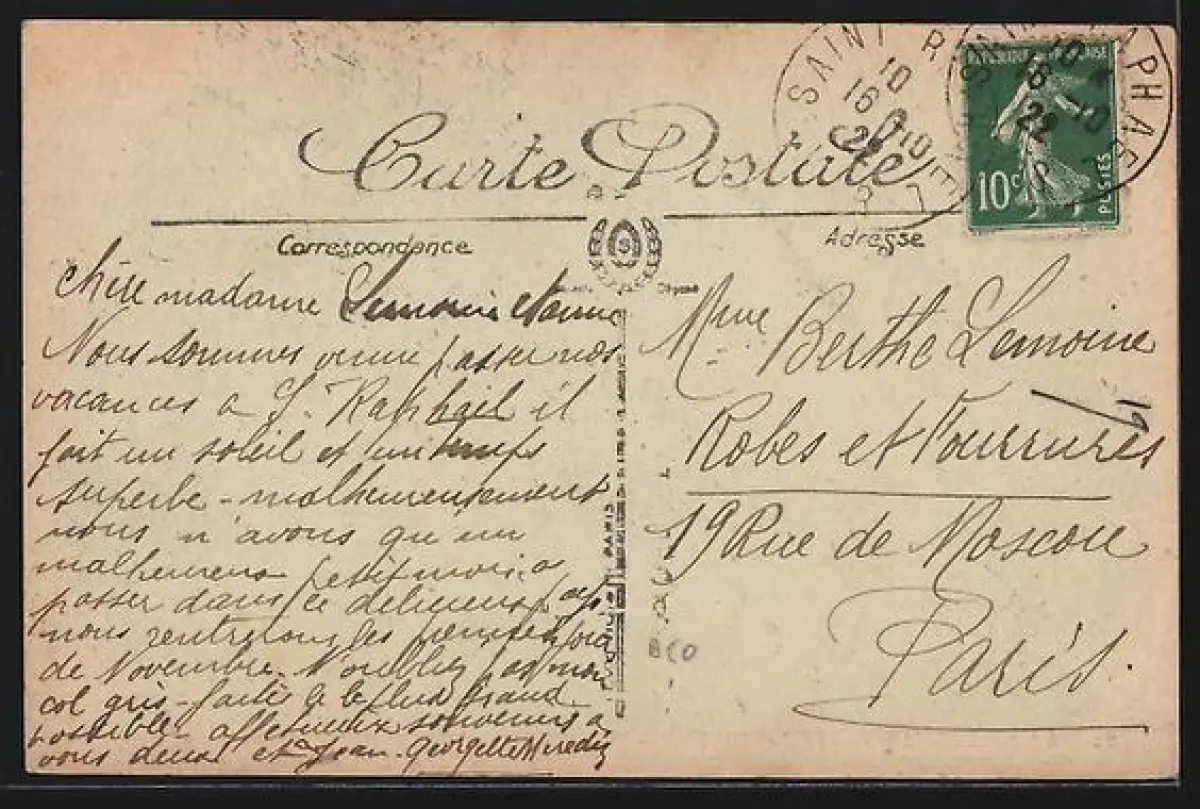 SAINT RAPHAEL
10
16 -10
22
SAINT RAPHAEL
10
16 -10
22
REPUBLIQUE FRANÇAISE
10c
POSTES
Carte Postale
Correspondance
Adresse
S
chère madame Lemoine et
Nous sommes venue passer nos
vacances a St. Raphaël il
fait un soleil et un temps
superbe - malheureusement
nous n'avons que un
malheureux petit mois a
passer dans ce delicieux pays
nous rentrerons les premiers
de Novembre. N'oubliez pas mon
col gris - faite le le plus grand
possible affectueux souvenirs a
vous deux et a Jean. Georgette
Mme Berthe Lemoine
Robes et Fourrures
19 Rue de Moscou
Paris.
PARIS